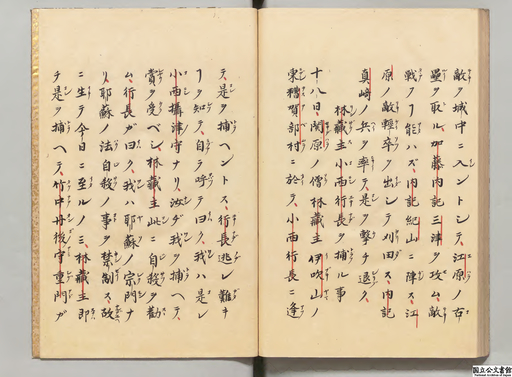 敵ヲ城中ニ入ントシテ、江原ノ古
壘ヲ取ル、加藤内記三津ヲ攻ム、敵
戦フ能ハズ、内記紀山ニ陣ス、江
原ノ敵軽卒ヲ出シテ刈田ス、内記
真崎ノ兵ヲ率テ是ヲ撃チ退ク、
林蔵主小西行長ヲ捕ル事
十八日、関原ノ僧林蔵主伊吹山ノ
東糟賀部村ニ於テ、小西行長ニ逢
テ、是ヲ捕ヘントス、行長迯レ難キ
ヲ知テ、自ラ呼テ曰ク、我ハ是レ
小西攝津守ナリ、汝ヂ我ヲ捕ヘテ、
賞ヲ受ベシ、林蔵主此ニ自殺ヲ勸
ム、行長ガ曰ク、我ハ耶蘇ノ宗門ナ
リ、耶蘇ノ法自殺ノ事ヲ禁制ス、故
ニ生テ今日ニ至ルノミ、林蔵主即
チ是ヲ捕ヘテ、竹中丹後守重門ガ
国立公文書館
National Archives of Japan